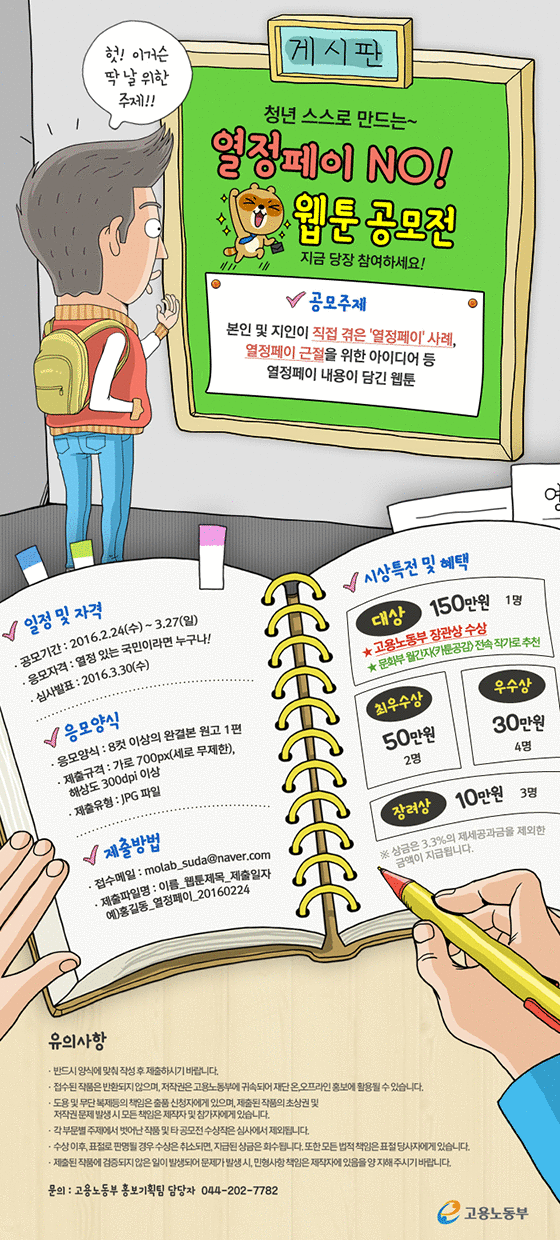 헛! 이거슨
딱 날 위한
주제!!
게시판
청년 스스로 만드는~
열정페이 NO!
웹툰 공모전
지금 당장 참여하세요!
공모주제
본인 및 지인이 직접 겪은 '열정페이' 사례,
열정페이 근절을 위한 아이디어 등
열정페이 내용이 담긴 웹툰
일정 및 자격
· 공모기간 : 2016.2.24(수) ~ 3.27(일)
· 응모자격 : 열정 있는 국민이라면 누구나!
· 심사발표 : 2016.3.30(수)
응모양식
· 응모양식 : 8컷 이상의 완결본 원고 1편
· 제출규격 : 가로 700px(세로 무제한),
해상도 300dpi 이상
· 제출유형 : JPG 파일
제출방법
· 접수메일 : molab_suda@naver.com
· 제출파일명 : 이름_웹툰제목_제출일자
예)홍길동_열정페이_20160224
시상특전 및 혜택
대상 150만원 1명
★ 고용노동부 장관상 수상
★ 문화부 월간지(카툰공감) 전속 작가로 추천
최우수상
50만원
2명
우수상
30만원
4명
장려상 10만원 3명
※ 상금은 3.3%의 제세공과금을 제외한
금액이 지급됩니다.
유의사항
· 반드시 양식에 맞춰 작성 후 제출하시기 바랍니다.
· 접수된 작품은 반환되지 않으며, 저작권은 고용노동부에 귀속되어 재단 온,오프라인 홍보에 활용될 수 있습니다.
· 도용 및 무단 복제등의 책임은 출품 신청자에게 있으며, 제출된 작품의 초상권 및
저작권 문제 발생 시 모든 책임은 제작자 및 참가자에게 있습니다.
· 각 부문별 주제에서 벗어난 작품 및 타 공모전 수상작은 심사에서 제외됩니다.
· 수상 이후, 표절로 판명될 경우 수상은 취소되면, 지급된 상금은 회수됩니다. 또한 모든 법적 책임은 표절 당사자에게 있습니다.
· 제출된 작품에 검증되지 않은 일이 발생되어 문제가 발생 시, 민형사항 책임은 제작자에 있음을 양 지해 주시기 바랍니다.
문의 : 고용노동부 홍보기획팀 담당자 044-202-7782
고용노동부